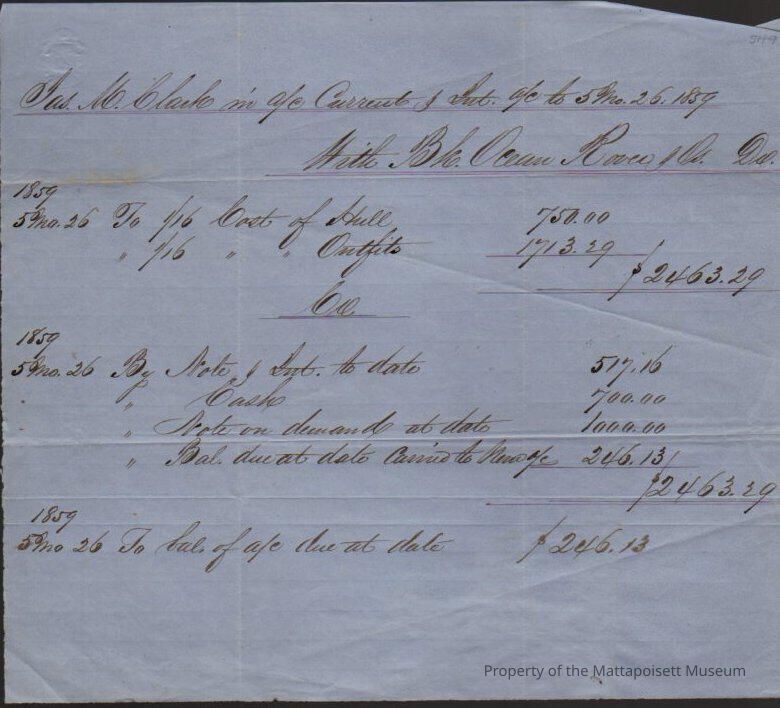 Jas. M. Clark in a/c Current & Int. a/c to 5 Mo. 26. 1859
With Bk. Ocean Rover & Os. Dr.
1859
5 Mo. 26 To 1/16 Cost of Hull 750.00
" 1/16 " " Outfits 1713.29
$2463.29
Cr.
1859
5 Mo. 26 By Note & Int. to date 517.16
" Cash 700.00
" Note on demand at date 1000.00
" Bal. due at date Carried to New a/c 246.13
$2463.29
1859
5 Mo 26 To bal. of a/c due at date $246.13
Property of the Mattapoisett Museum